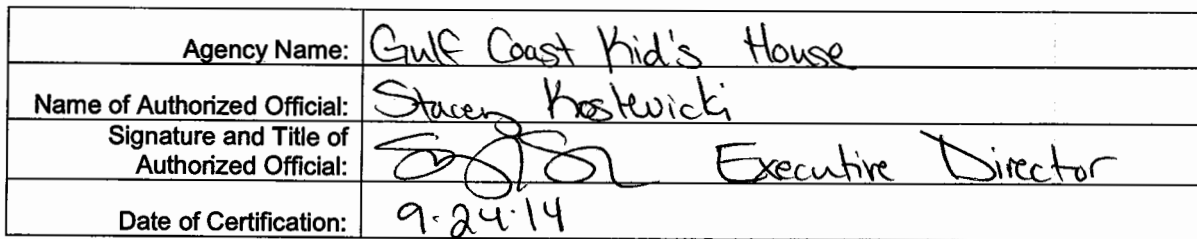 Agency Name: Gulf Coast Kid's House
Name of Authorized Official: Stacey Kostevicki
Signature and Title of
Authorized Official: Executive Director
Date of Certification: 9.24.14